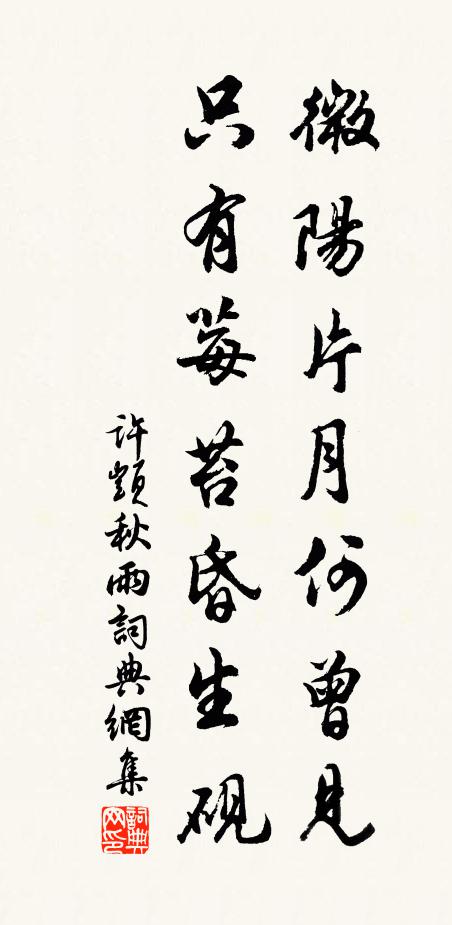 微陽片月何曾見
只有莓苔昏生硯
許顗秋雨詞典網集
詞典
网印